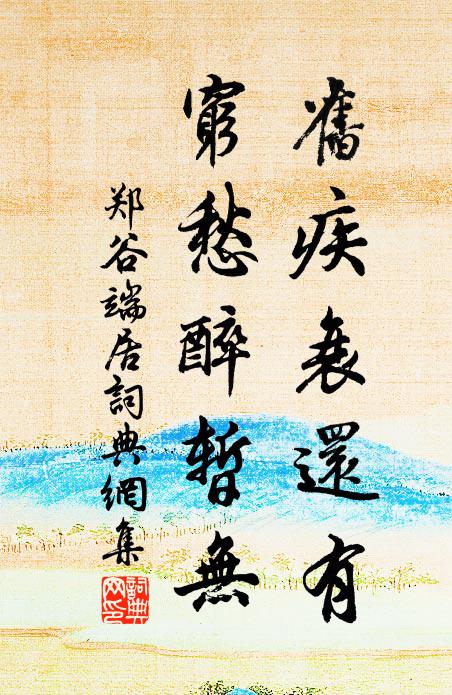 舊疾衰還有
窮愁醉暫無
郑谷端居詞典網集
詞典